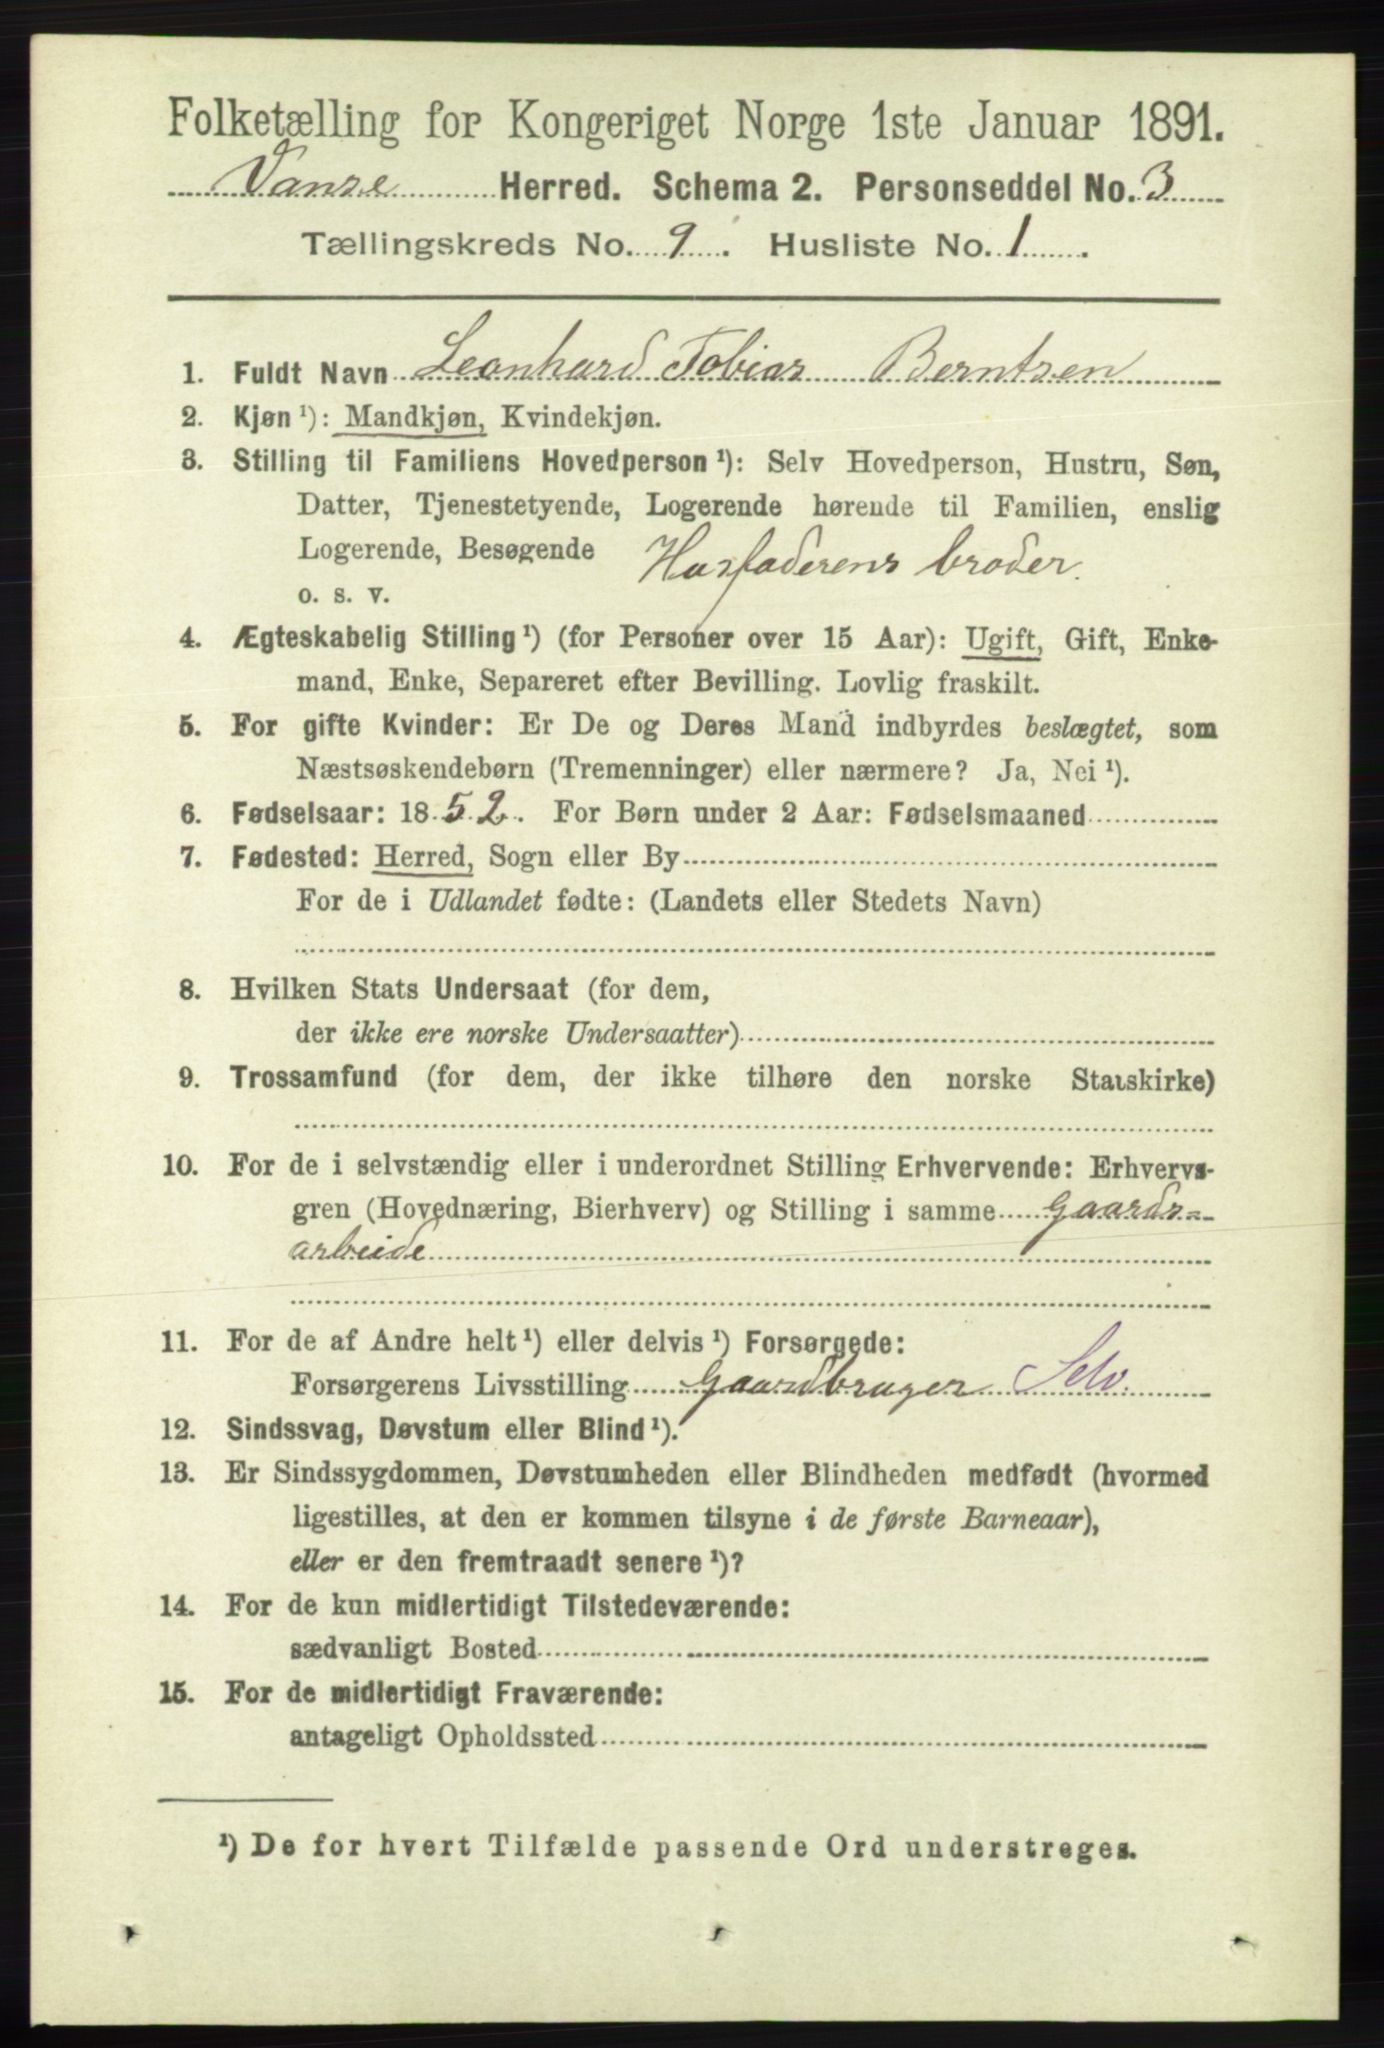 Folketælling for Kongeriget Norge 1ste Januar 1891.
Vanse Herred. Schema 2. Personseddel No. 3
Tællingskreds No. 9. Husliste No. 1.
1. Fuldt Navn Leonhard Tobias Berntsen
2. Kjøn ¹): Mandkjøn, Kvindekjøn.
3. Stilling til Familiens Hovedperson ¹): Selv Hovedperson, Hustru, Søn,
Datter, Tjenestetyende, Logerende hørende til Familien, enslig
Logerende, Besøgende Husfaderens broder.
o. s. v.
4. Ægteskabelig Stilling ¹) (for Personer over 15 Aar): Ugift, Gift, Enke-
mand, Enke, Separeret efter Bevilling. Lovlig fraskilt.
5. For gifte Kvinder: Er De og Deres Mand indbyrdes beslægtet, som
Næstsøskendebørn (Tremenninger) eller nærmere? Ja, Nei ¹).
6. Fødselsaar: 1852. For Børn under 2 Aar: Fødselsmaaned
7. Fødested: Herred, Sogn eller By
For de i Udlandet fødte: (Landets eller Stedets Navn)
8. Hvilken Stats Undersaat (for dem,
der ikke ere norske Undersaatter)
9. Trossamfund (for dem, der ikke tilhøre den norske Statskirke)
10. For de i selvstændig eller i underordnet Stilling Erhvervende: Erhvervs-
gren (Hovednæring, Bierhverv) og Stilling i samme Gaards=
arbeide
11. For de af Andre helt ¹) eller delvis ¹) Forsørgede:
Forsørgerens Livsstilling Gaardbruger Selv.
12. Sindssvag, Døvstum eller Blind ¹).
13. Er Sindssygdommen, Døvstumheden eller Blindheden medfødt (hvormed
ligestilles, at den er kommen tilsyne i de første Barneaar),
eller er den fremtraadt senere ¹)?
14. For de kun midlertidigt Tilstedeværende:
sædvanligt Bosted
15. For de midlertidigt Fraværende:
antageligt Opholdssted
¹) De for hvert Tilfælde passende Ord understreges.